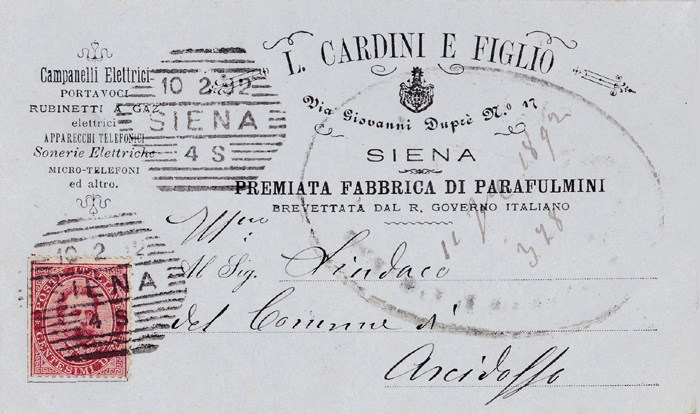 L. CARDINI E FIGLIO
Via Giovanni Duprè N.º 17
SIENA
PREMIATA FABBRICA DI PARAFULMINI
BREVETTATA DAL R. GOVERNO ITALIANO
Campanelli Elettrici
PORTAVOCI
RUBINETTI A GAZ
elettrici
APPARECCHI TELEFONICI
Sonerie Elettriche
MICRO-TELEFONI
ed altro.
10 2 92
SIENA
4 S
1892
328
Al Sig. Sindaco
del Comune di
Arcidosso
10 2 92
SIENA
4 S
CENTESIMI